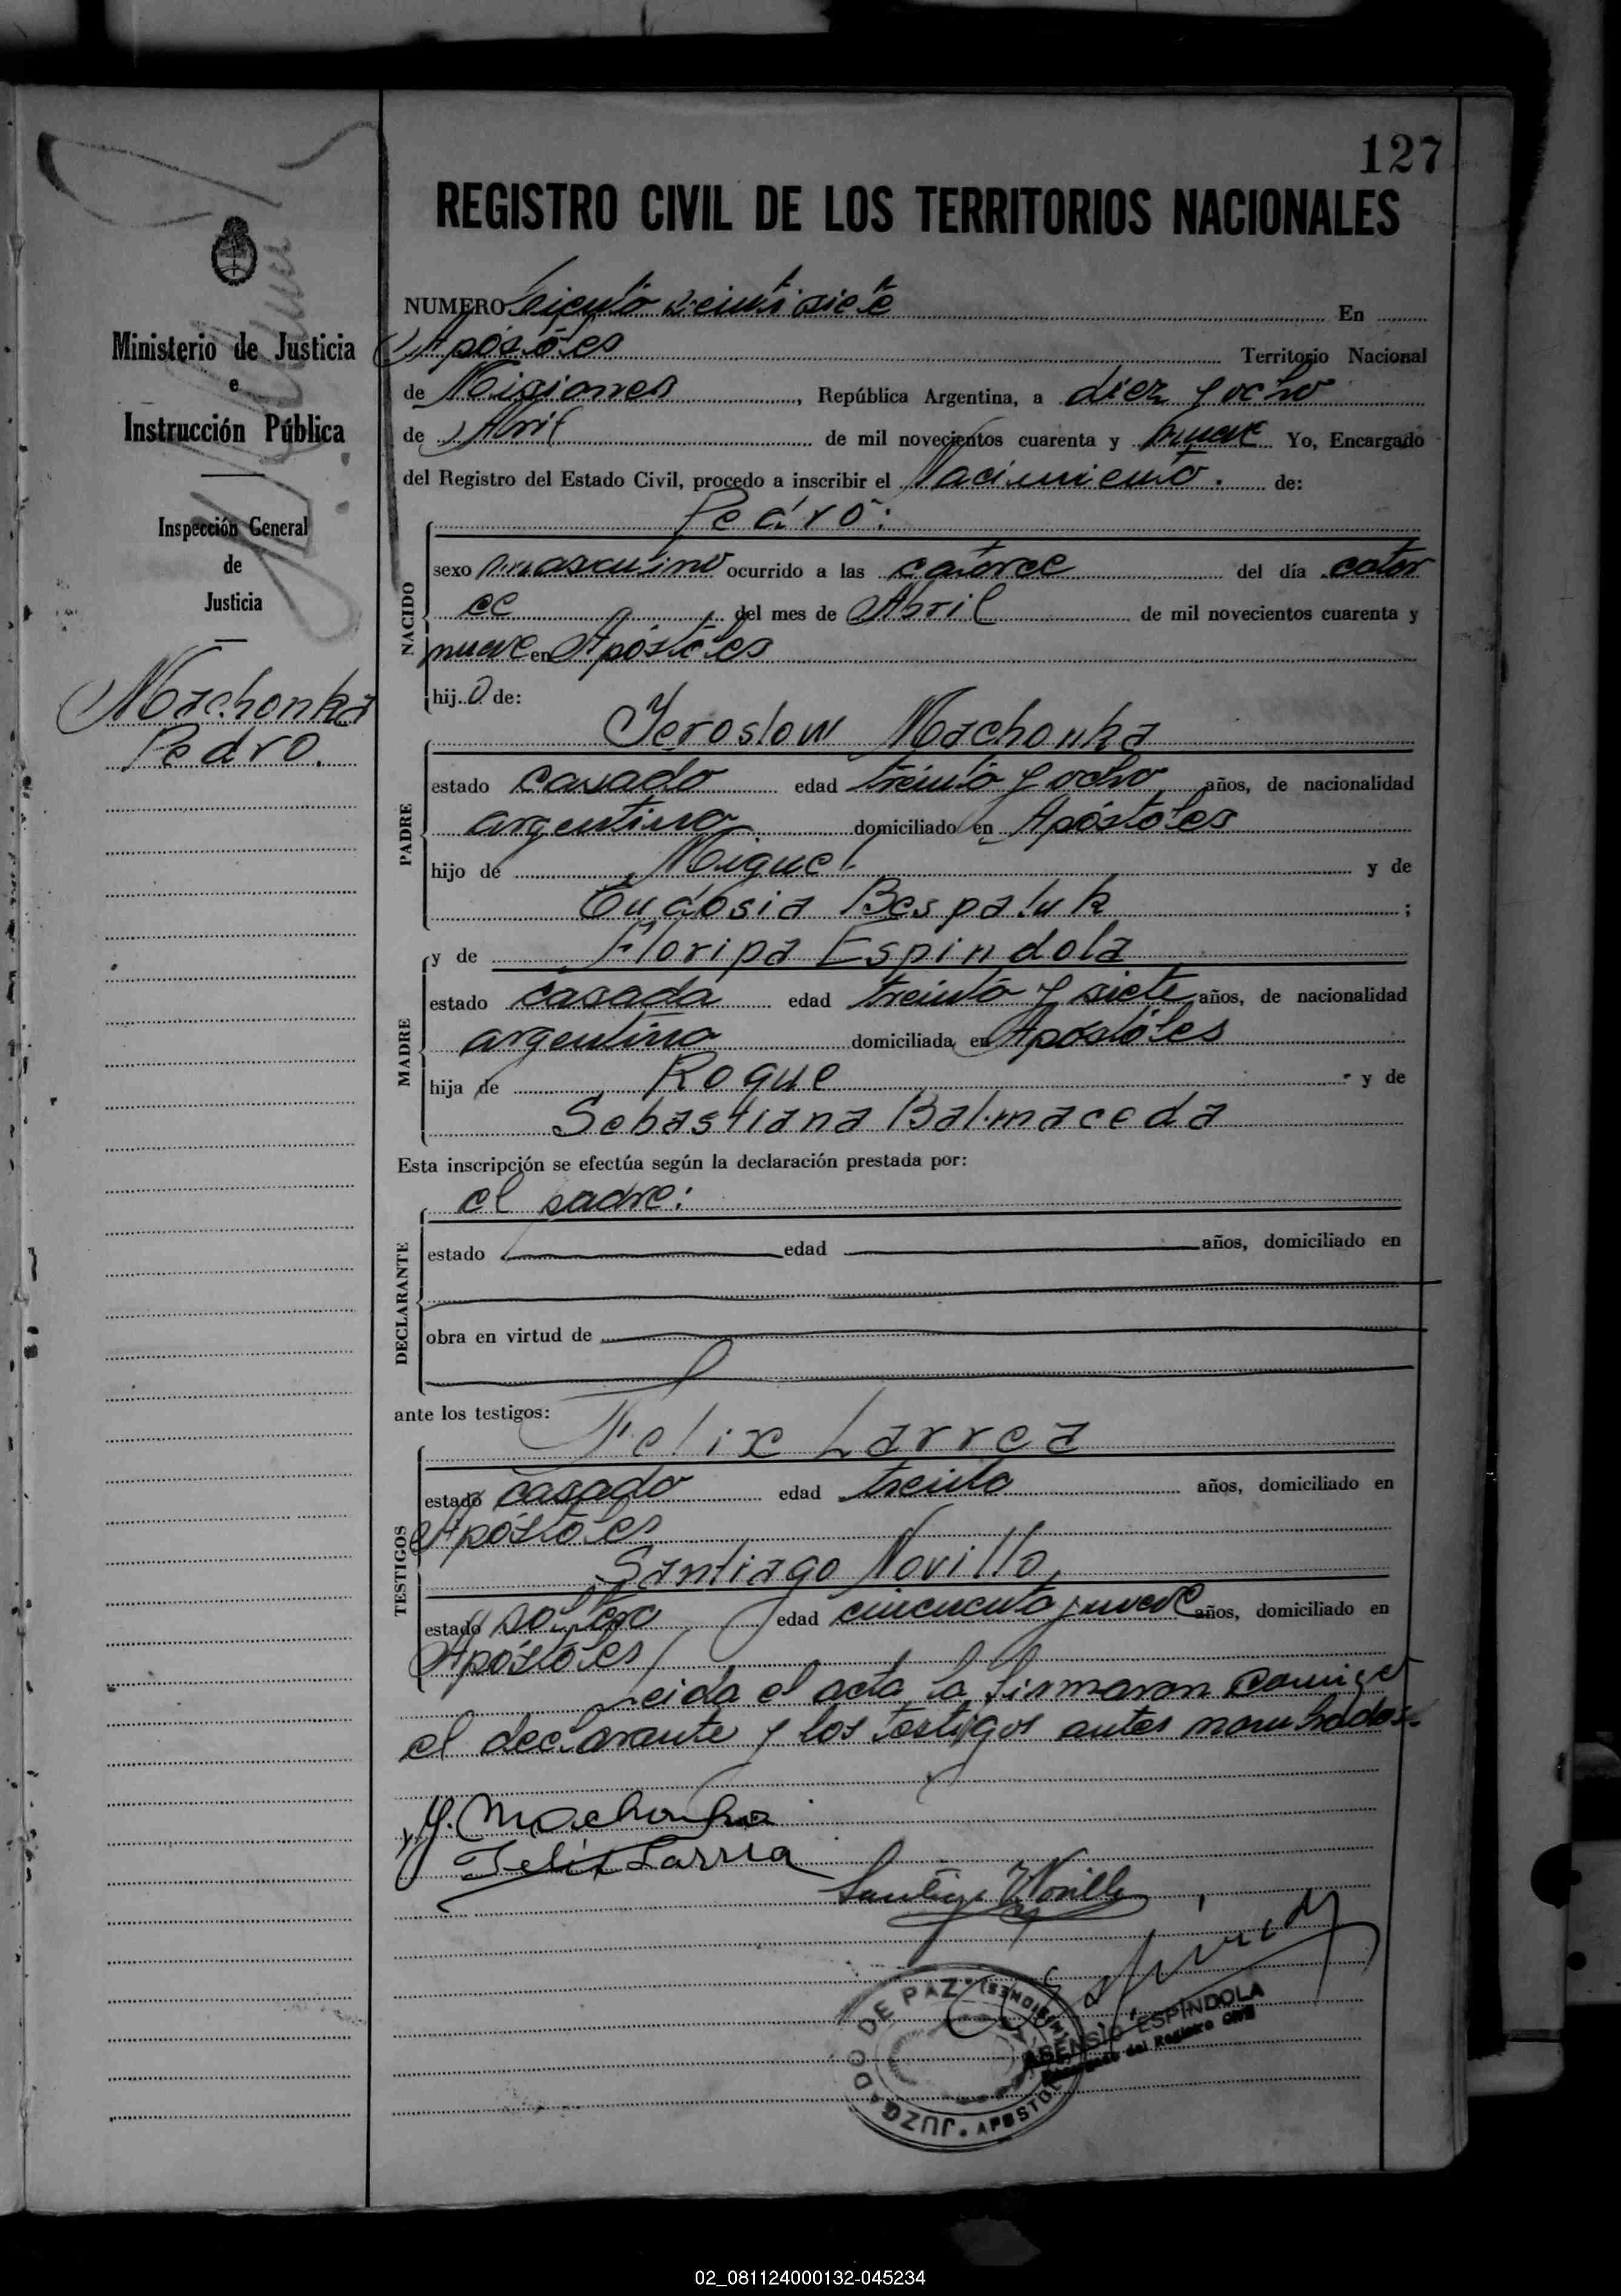 127
REGISTRO CIVIL DE LOS TERRITORIOS NACIONALES
Ministerio de Justicia
e
Instrucción Pública
Inspección General
de
Justicia
Machonka
Pedro.
NUMERO Ciento veinti siete En
Apóstoles Territorio Nacional
de Misiones, República Argentina, a diez y ocho
de Abril de mil novecientos cuarenta y nueve Yo, Encargado
del Registro del Estado Civil, procedo a inscribir el Nacimiento. de:
Pedro:
NACIDO
sexo masculino ocurrido a las catorce del día cator
ce del mes de Abril de mil novecientos cuarenta y
nueve en Apóstoles
hijo de:
Jeroslow Machonka
PADRE
estado casado edad treinta y ocho años, de nacionalidad
argentina domiciliado en Apóstoles
hijo de Miguel y de
Eudosia Bespaluk ;
y de Floripa Espindola
MADRE
estado casada edad treinta y siete años, de nacionalidad
argentina domiciliada en Apóstoles
hija de Roque y de
Sebastiana Balmaceda
Esta inscripción se efectúa según la declaración prestada por:
el padre:
DECLARANTE
estado edad años, domiciliado en
obra en virtud de
ante los testigos:
Felix Larrea
TESTIGOS
estado casado edad treinta años, domiciliado en
Apóstoles
Santiago Novillo
estado soltero edad cincuenta y nueve años, domiciliado en
Apóstoles
Leida el acta la firmaron conmigo
el declarante y los testigos antes nombrados.
Y. Machonka
Felix Larrea
Santiago Novillo
JUZGADO DE PAZ • APOSTOLES (MISIONES)
ASENSIO ESPINDOLA
Encargado del Registro Civil
02_081124000132-045234